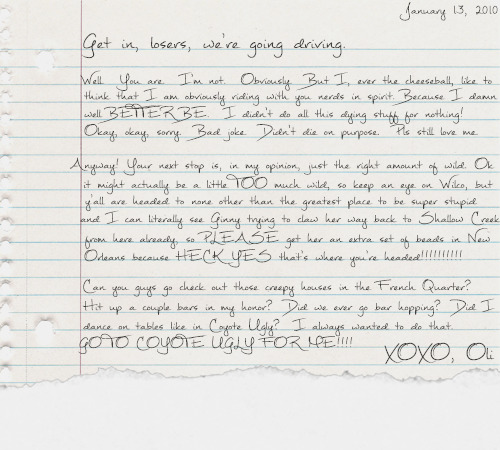 January 13, 2010
Get in, losers, we're going driving.
Well. You are. I'm not. Obviously. But I, ever the cheeseball, like to
think that I am obviously riding with you nerds in spirit. Because I damn
well BETTER BE. I didn't do all this dying stuff for nothing!
Okay, okay, sorry. Bad joke. Didn't die on purpose. Pls still love me.
Anyway! Your next stop is, in my opinion, just the right amount of wild. Ok
it might actually be a little TOO much wild, so keep an eye on Wilco, but
y'all are headed to none other than the greatest place to be super stupid
and I can literally see Ginny trying to claw her way back to Shallow Creek
from here already, so PLEASE get her an extra set of beads in New
Orleans because HECK YES that's where you're headed!!!!!!!!!!
Can you guys go check out those creepy houses in the French Quarter?
Hit up a couple bars in my honor? Did we ever go bar hopping? Did I
dance on tables like in Coyote Ugly? I always wanted to do that.
GO TO COYOTE UGLY FOR ME!!!!
XOXO, Oli